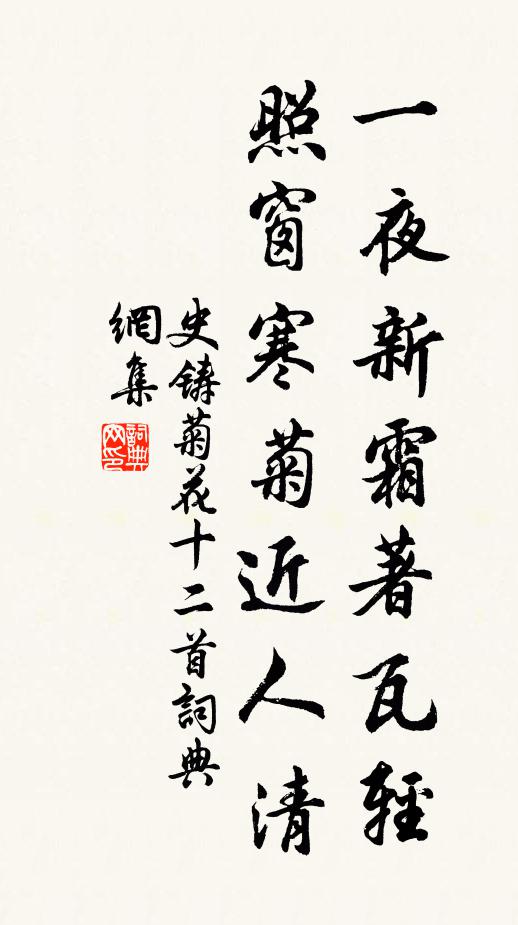 一夜新霜著瓦輕
照窗寒菊近人清
史鑄菊花十二首詞典
網集
詞典
网印